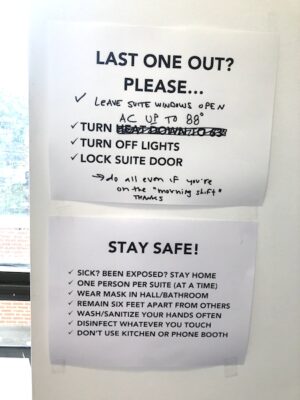 LAST ONE OUT?
PLEASE...
✓ LEAVE SUITE WINDOWS OPEN
AC UP TO 88°
✓ TURN HEAT DOWN TO 63°
✓ TURN OFF LIGHTS
✓ LOCK SUITE DOOR
→ do all even if you're
on the "morning shift"
THANKS
STAY SAFE!
✓ SICK? BEEN EXPOSED? STAY HOME
✓ ONE PERSON PER SUITE (AT A TIME)
✓ WEAR MASK IN HALL/BATHROOM
✓ REMAIN SIX FEET APART FROM OTHERS
✓ WASH/SANITIZE YOUR HANDS OFTEN
✓ DISINFECT WHATEVER YOU TOUCH
✓ DON'T USE KITCHEN OR PHONE BOOTH